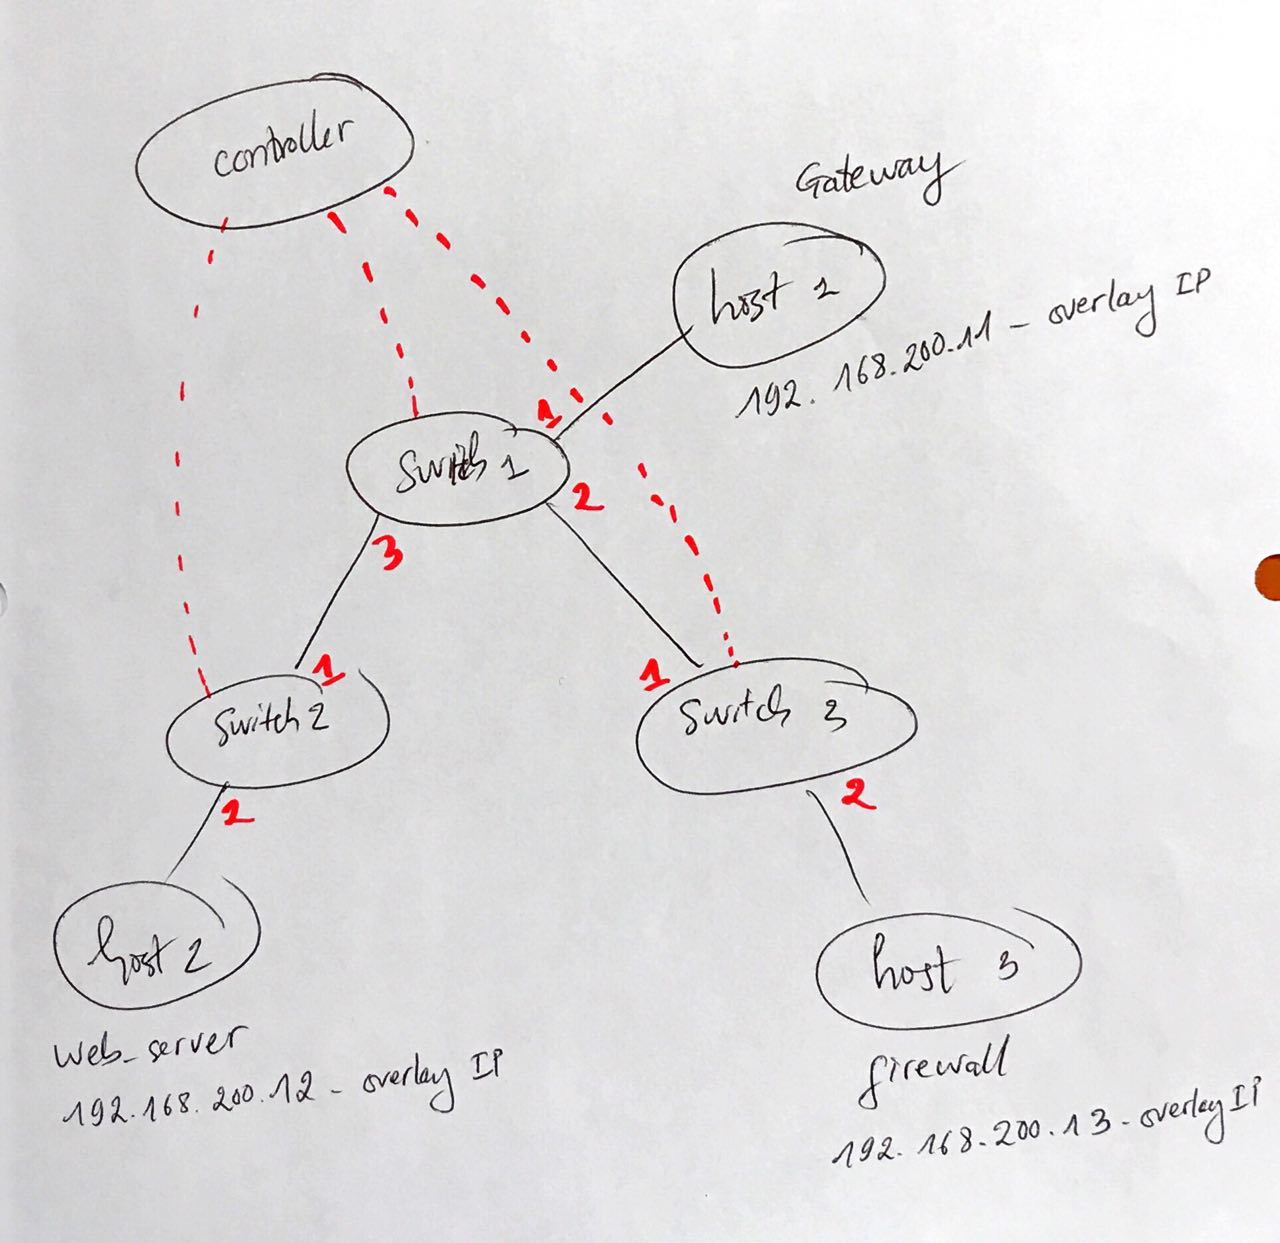 controller
Gateway
host 1
192.168.200.11 - overlay IP
1
Switch 1
2
3
1
1
Switch 2
Switch 3
2
2
host 2
host 3
Web_server
firewall
192.168.200.12 - overlay IP
192.168.200.13 - overlay IP